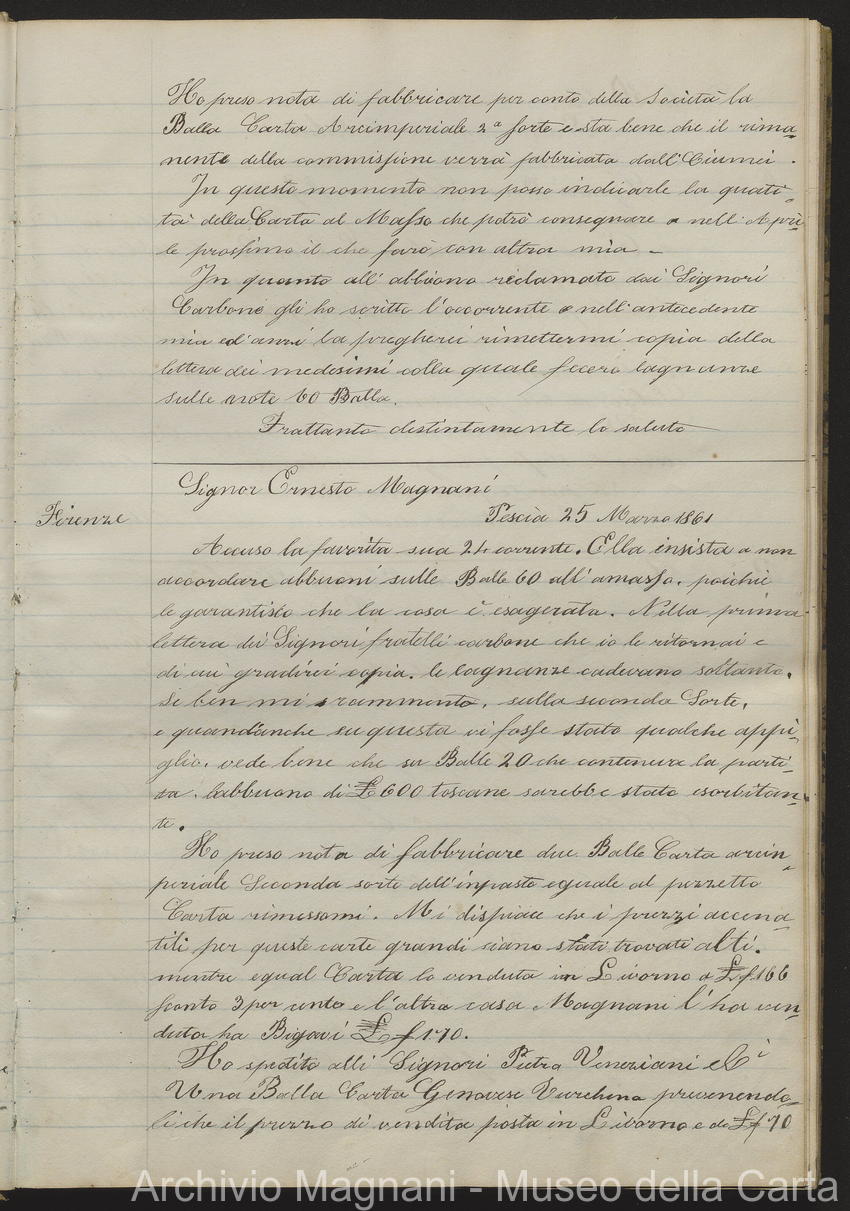 Ho preso nota di fabbricare per conto della Società la
Balla Carta Arcimperiale 2ª sorte e sta bene che il rima=
nente della commissione verrà fabbricata dall'Ciumei.
In questo momento non posso indicarle la quati=
tà della Carta al Masso che potrò consegnare nell'Apri=
le prossimo il che farò con altra mia –
In quanto all'abbuono reclamato dai Signori
Carbone gli ho scritto l'occorrente nell'antecedente
mia ed anzi la pregherei rimettermi copia della
lettera dei medesimi colla quale fecero lagnanze
sulle note 60 Balla.
Frattanto destintamente la saluto
Signor Ernesto Magnani
Firenze
Pescia 25 Marzo 1861
Accuso la favorita sua 24 corrente. Ella insista a non
accordare abbuoni sulle Balle 60 all'amasso, poichè
le garantisco che la cosa è esagerata. Nella prima
lettera dei Signori fratelli carbone che io le ritornai e
di cui gradirei copia, le lagnanze cadevano soltanto,
se ben mi rammento, sulla seconda Sorte,
e quand'anche su questa vi fosse stato qualche appi=
glio, vede bene che su Balle 20 che conteneva la parti=
ta, l'abbuono di £ 600 toscane sarebbe stato esorbitan=
te.
Ho preso nota di fabbricare due Balle Carta arcin=
periale Seconda sorte dell'inpasto eguale al pezzetto
Carta rimessomi. Mi dispiace che i prezzi accena=
titi per queste carte grandi siano stati trovati alti.
mentre egual Carta lo venduta in Livorno a £ f 166
sconto 3 per cento e l'altra casa Magnani l'ha ven=
duta ha Bigavi £ f 170.
Ho spedito alli Signori Pietro Veneziani e Ci
Una Balla Carta Genovese Turchina prevenendo=
li che il prezzo di vendita posta in Livorno e da £ f 70
Archivio Magnani - Museo della Carta